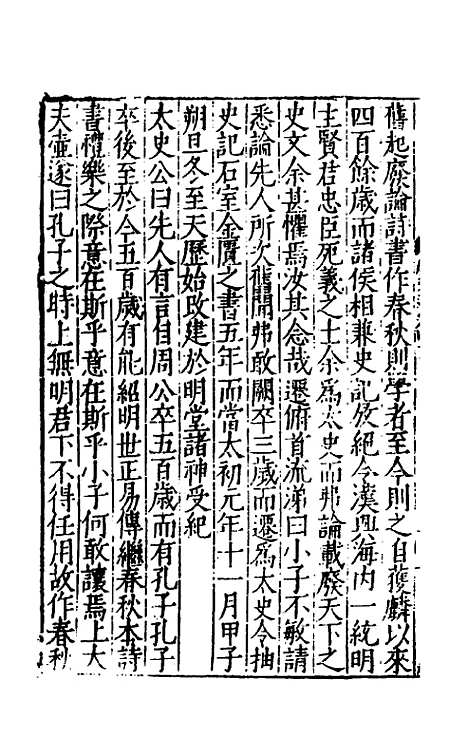 舊起廢論詩書作春秋則學者至今則之自獲麟以來
四百餘歲而諸侯相兼史記放絕今漢興海内一統明
主賢君忠臣死義之士余為太史而弗論載廢天下之
史文余甚懼焉汝其念哉遷俯首流涕曰小子不敏請
悉論先人所次舊聞弗敢闕卒三歲而遷為太史令抽
史記石室金匱之書五年而當太初元年十一月甲子
朔旦冬至天歷始改建於明堂諸神受紀
太史公曰先人有言自周公卒五百歲而有孔子孔子
卒後至於今五百歲有能紹明世正易傳繼春秋本詩
書禮樂之際意在斯乎意在斯乎小子何敢讓焉上大
夫壷遂曰孔子之時上無明君下不得任用故作春秋